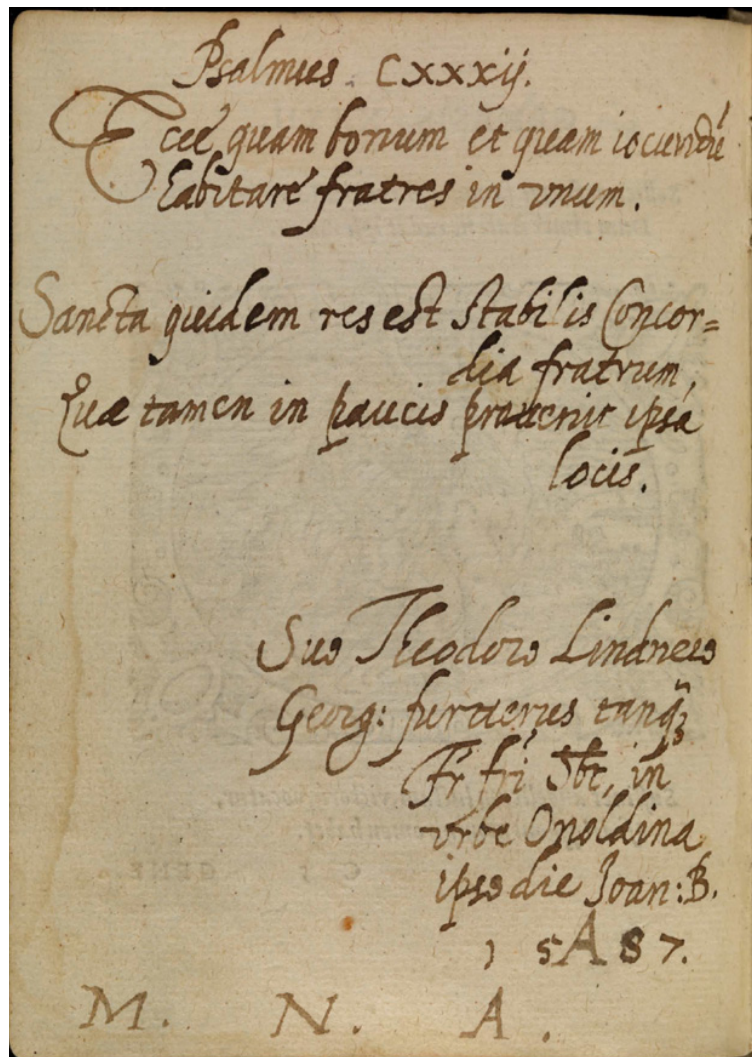 Psalmus. CXXXij.
Ecce quam bonum et quam iocundū
habitare fratres in vnum.
Sancta quidem res est stabilis Concor=
dia fratrum,
Quæ tamen in paucis prouenit ipsa
locis.
Theodoro
Georg: tanq̃
Fr fri in
vrbe Onoldina
ipso die Joan: B.
1 5 A 8 7.
M. N. A.